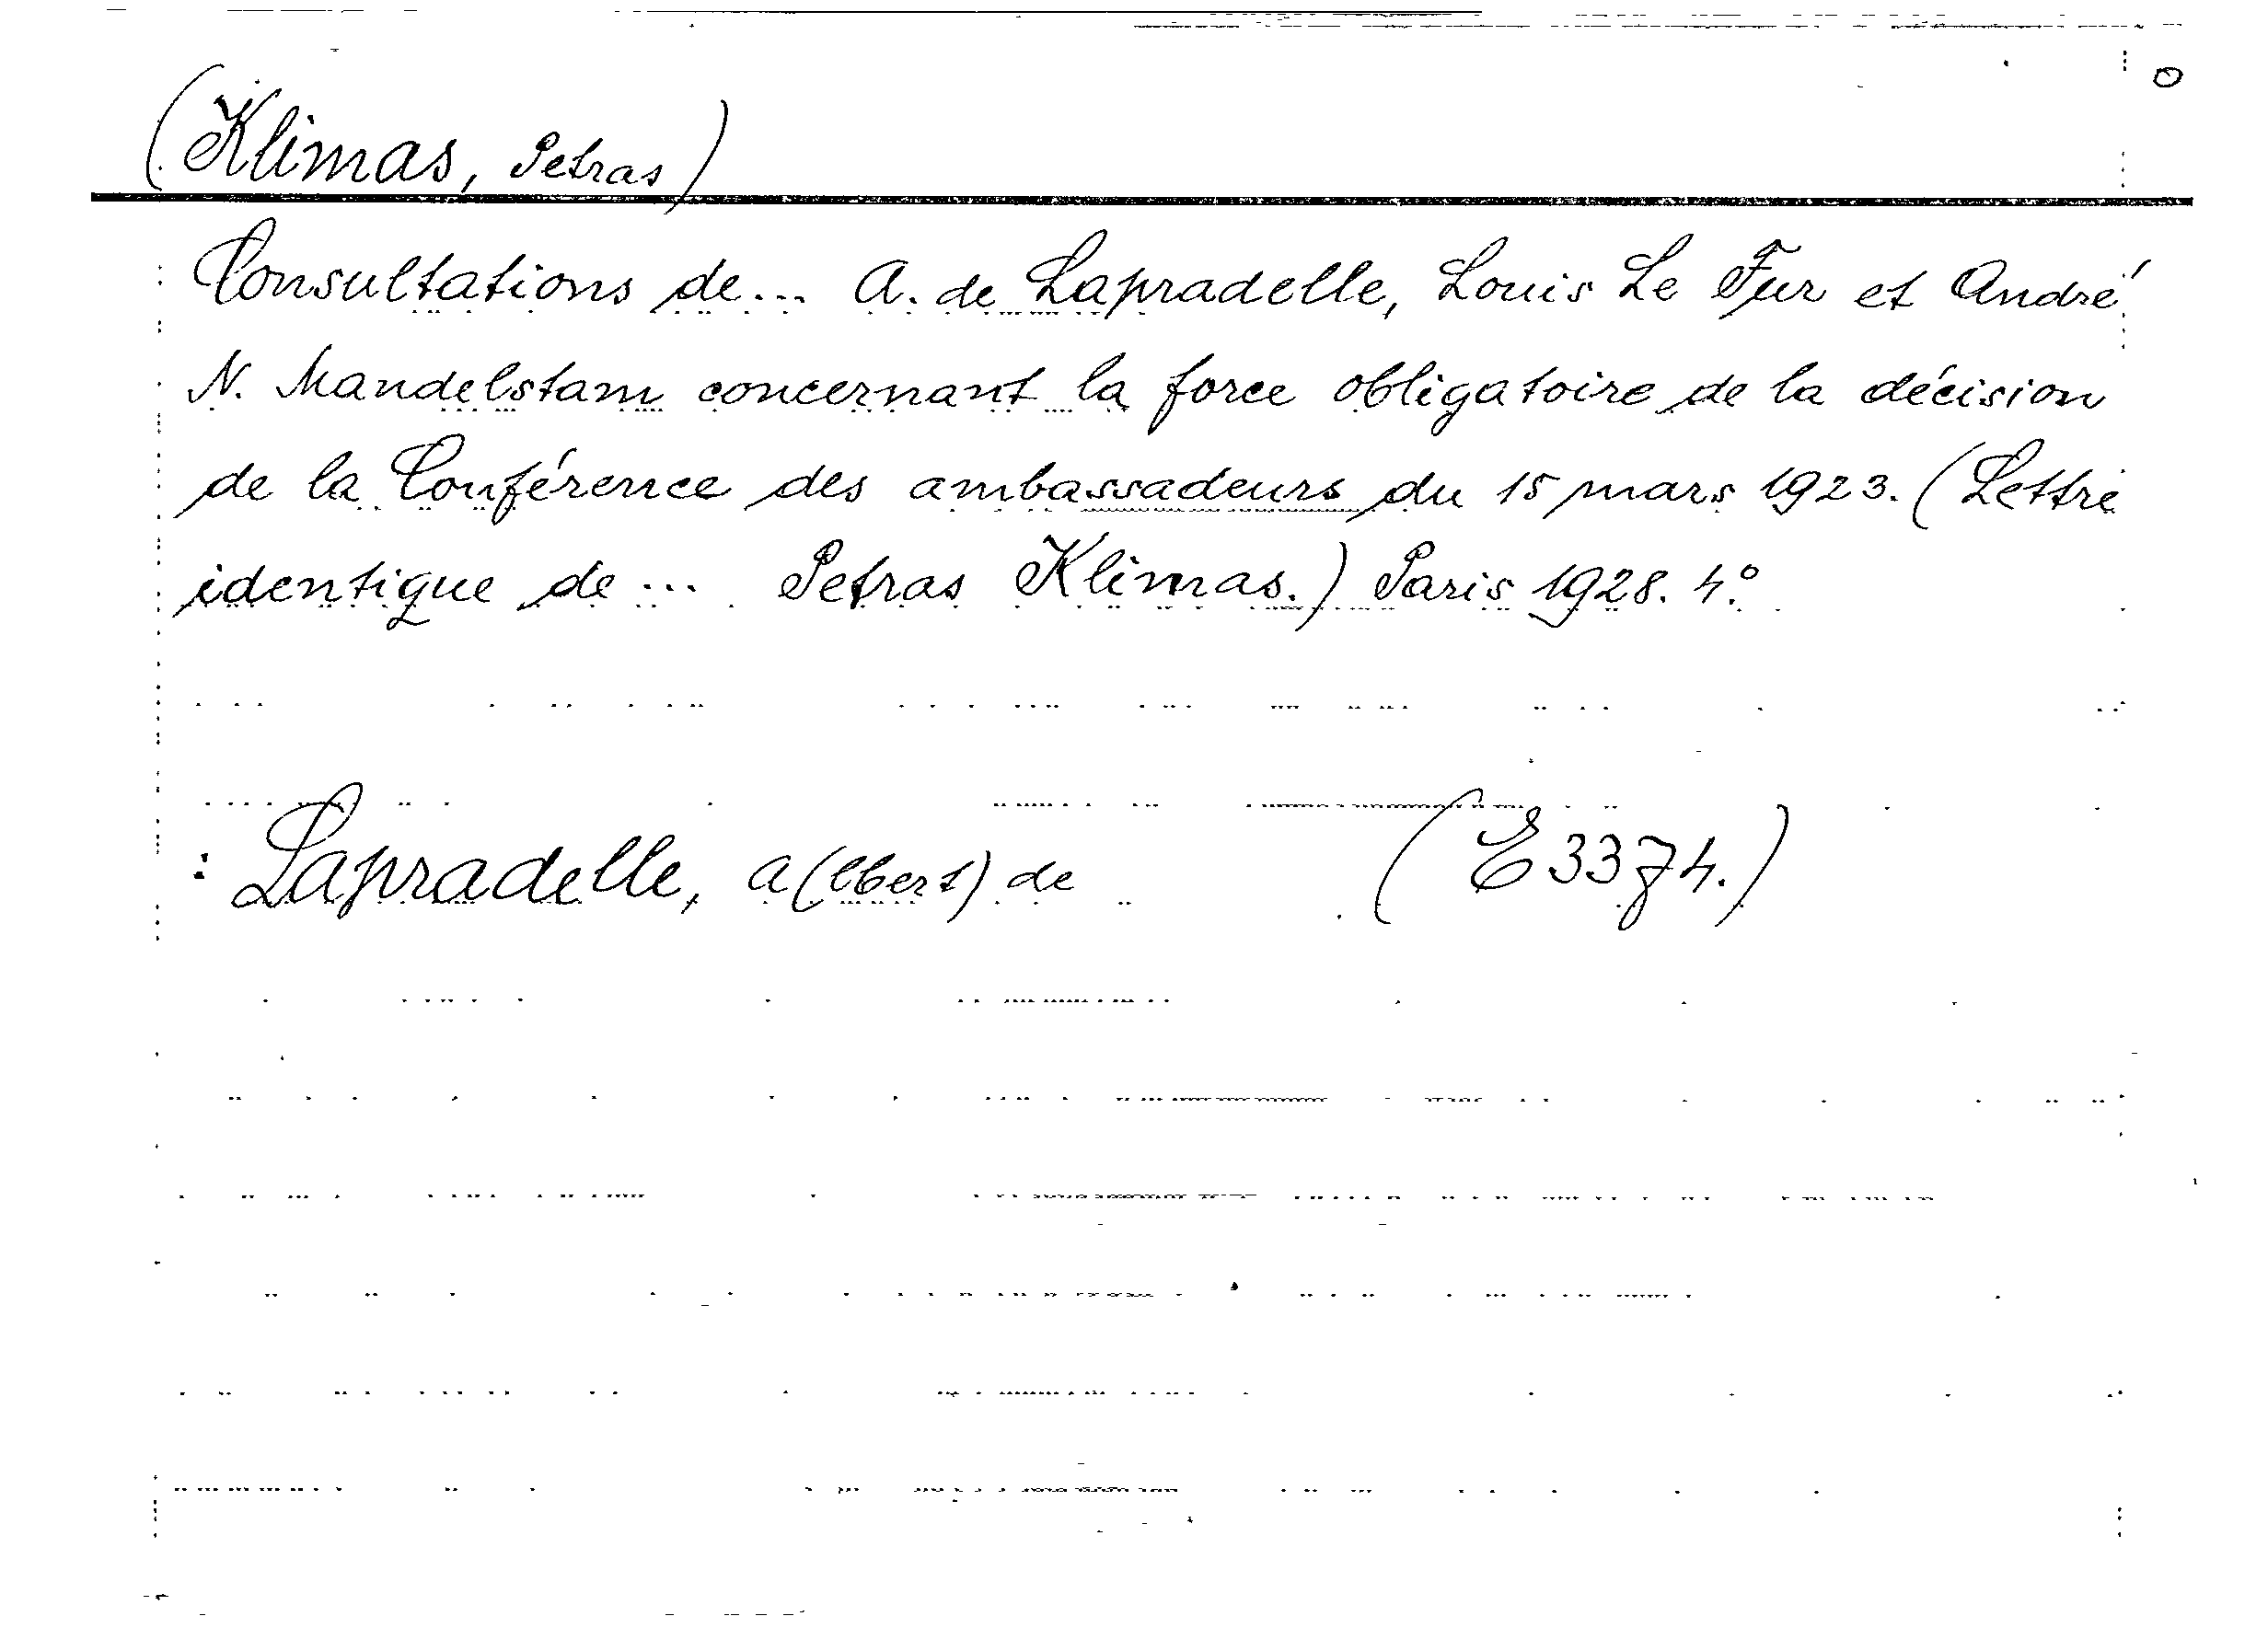 (Klimas, Petras)
Consultations de... A. de Lapradelle, Louis Le Fur et André
N. Mandelstam concernant la force obligatoire de la décision
de la Conférence des ambassadeurs du 15 mars 1923. (Lettre
identique de ... Petras Klimas.) Paris 1928. 4:o
: Lapradelle, A(lbert) de (E 3374.)